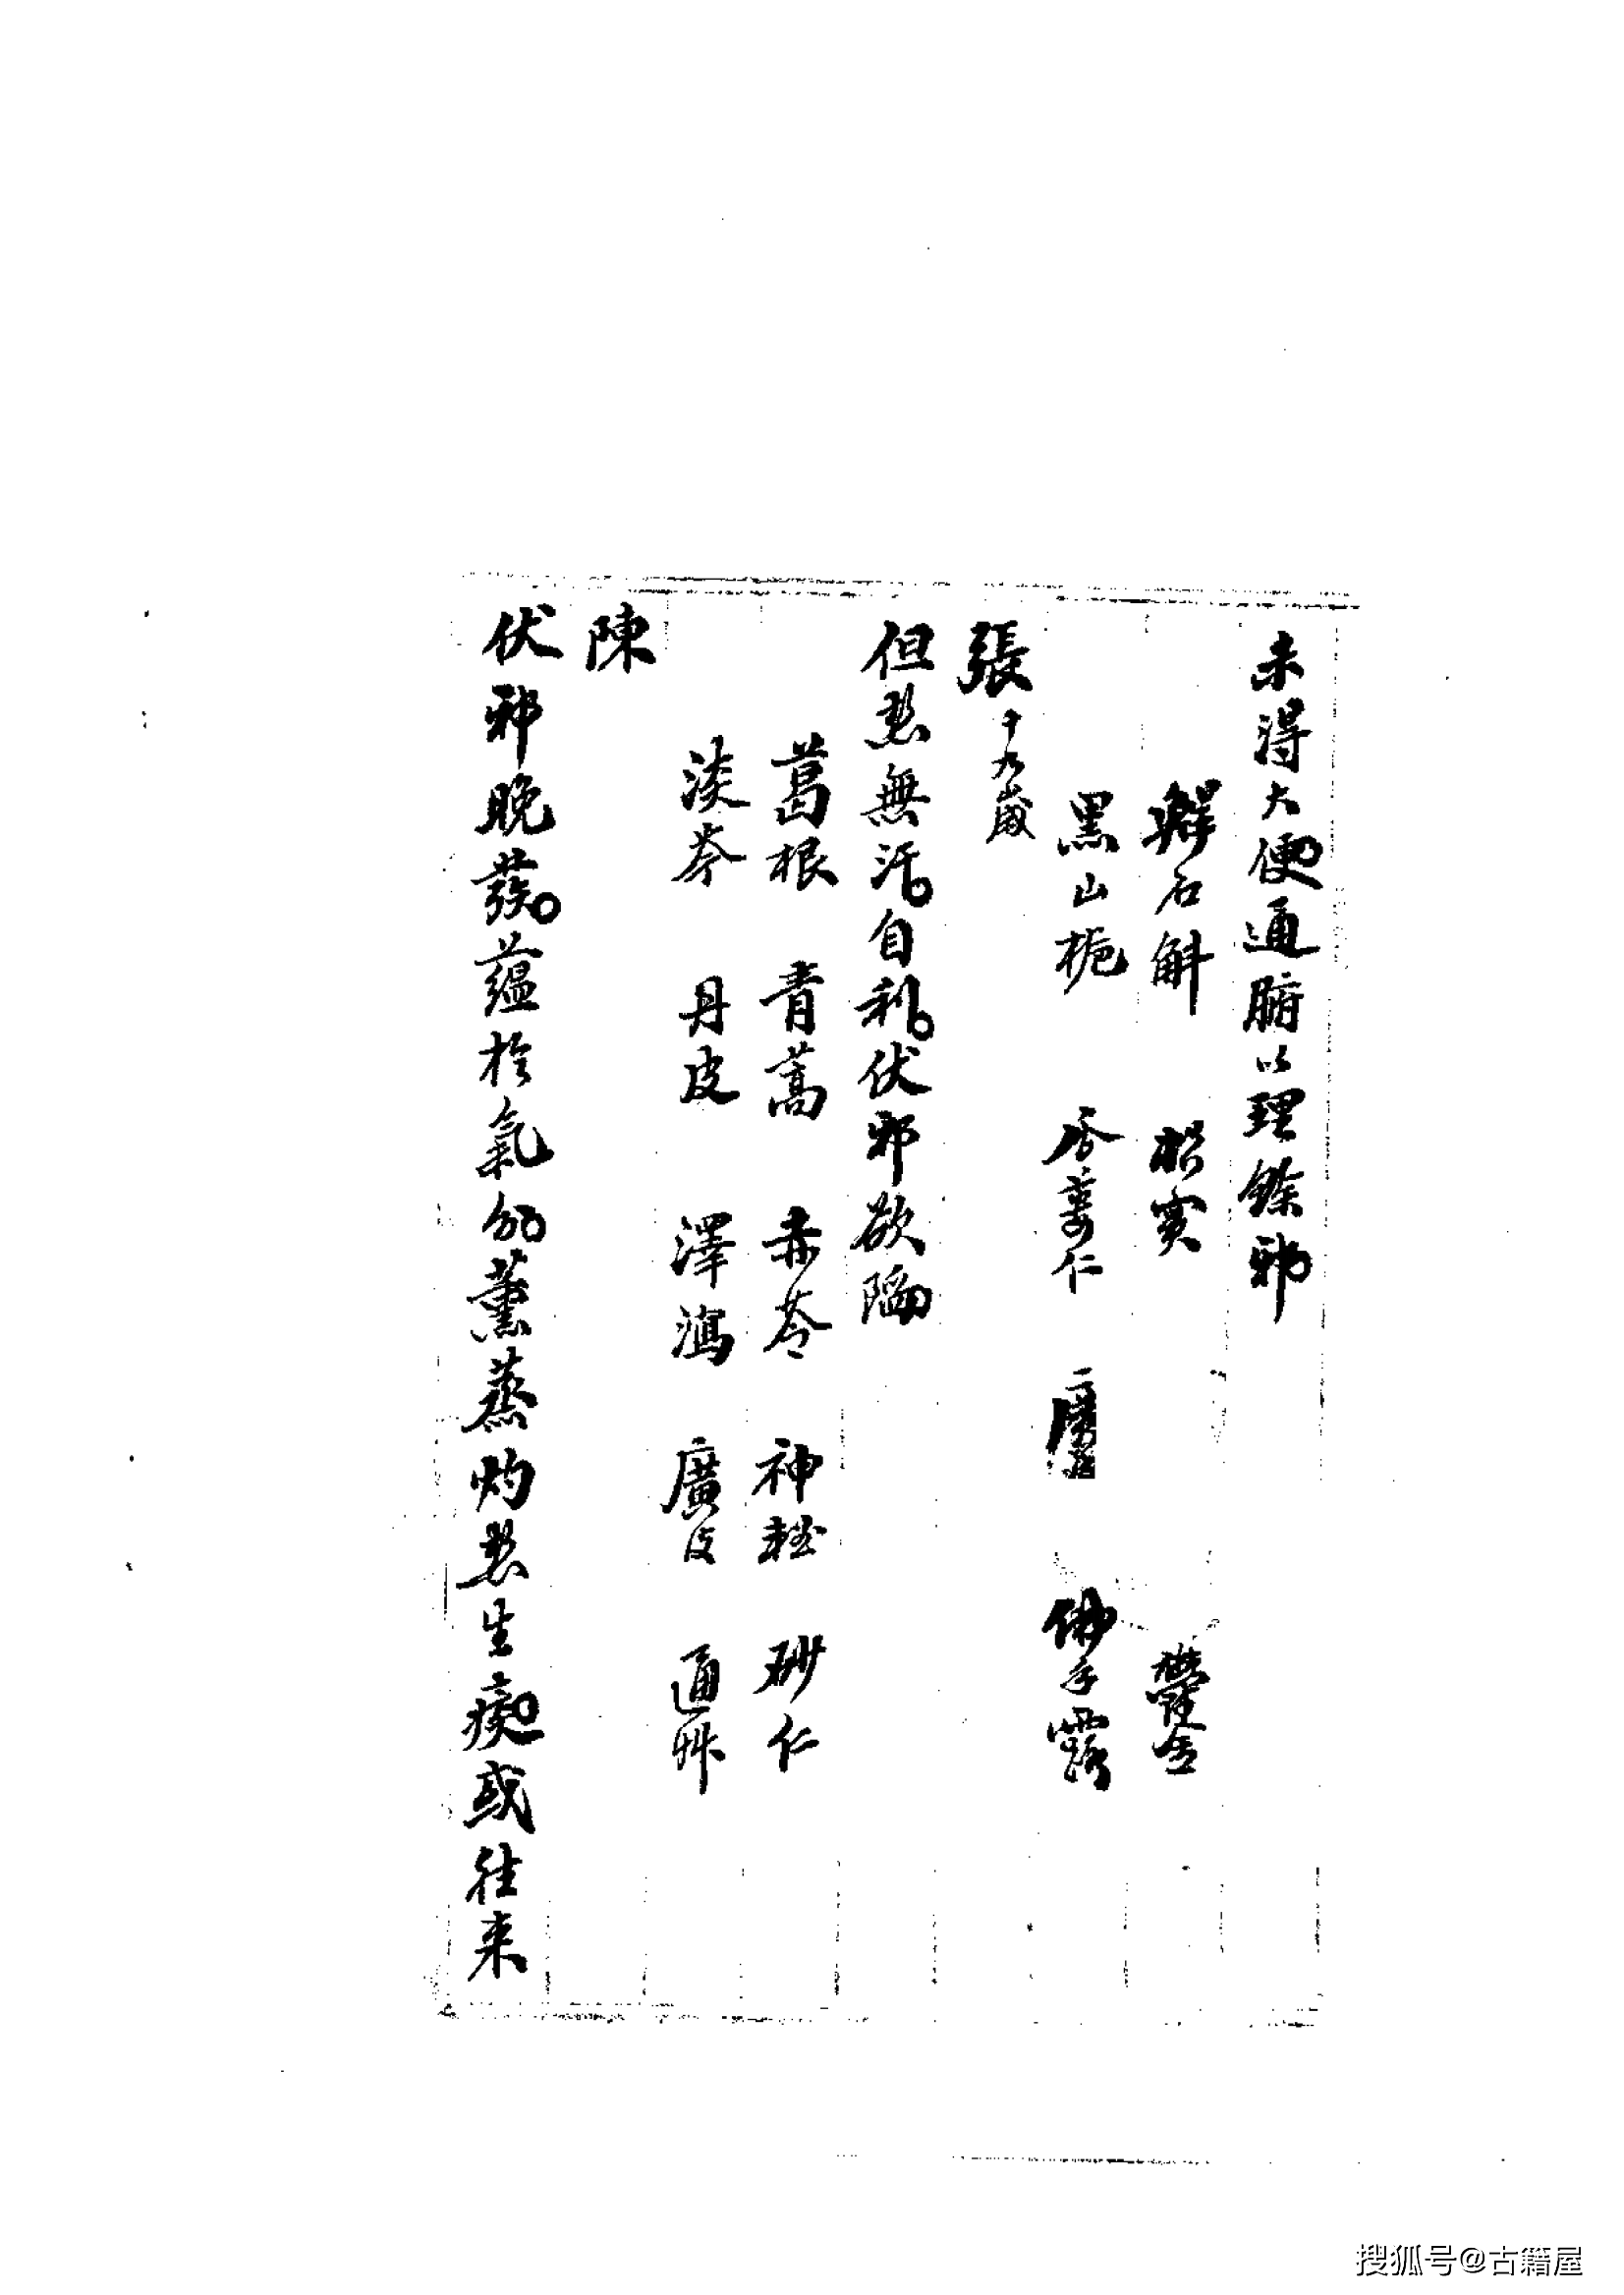 未得大便通腑以理餘邪
鮮石斛 枳實 鬱金
黑山梔 杏蔞仁 佛手露
張十九歲
但熱無汗自利伏邪欲陷
葛根 青蒿 赤苓 神麯 砂仁
淡芩 丹皮 澤瀉 廣皮 通艸
陳
伏邪晚發蘊於氣分薰蒸灼熱生痰或往来
搜狐号@古籍屋